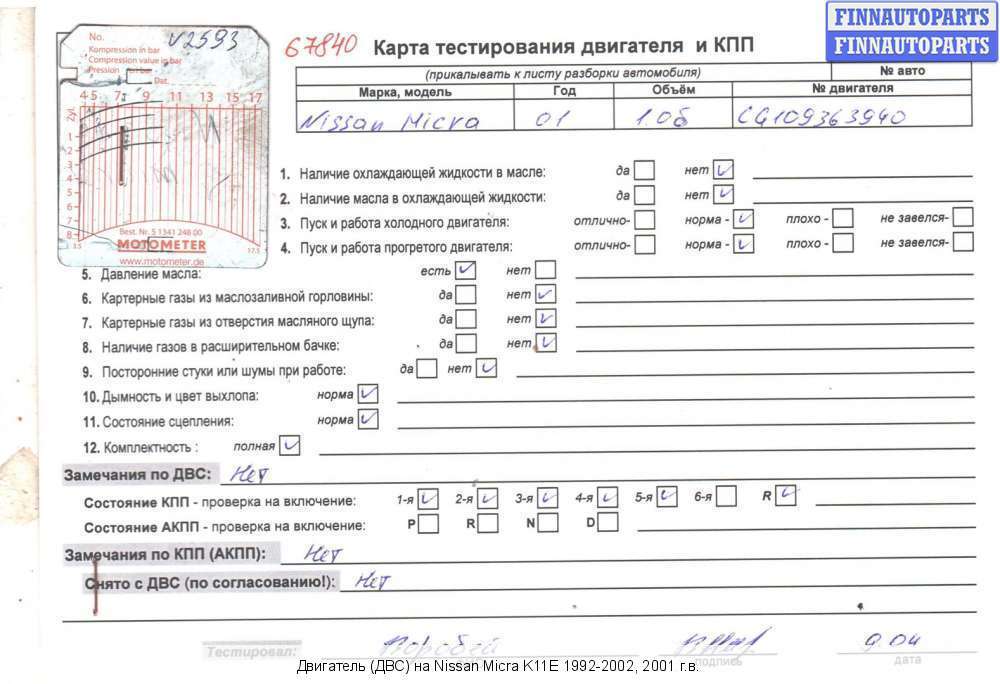 FINNAUTOPARTS
FINNAUTOPARTS
No. V2593
Kompression in bar
Compression value in bar
Pression en bar
Dat.
4 5 7 9 11 13 15 17
1
2
3
4
5
6
7
8
3.5 17.5
Best. Nr. 5 1341 248 00
MOTOMETER
www.motometer.de
67840 Карта тестирования двигателя и КПП
(прикалывать к листу разборки автомобиля) № авто
Марка, модель Год Объём № двигателя
Nissan Micra 01 1.0б CG109363940
1. Наличие охлаждающей жидкости в масле: да нет
2. Наличие масла в охлаждающей жидкости: да нет
3. Пуск и работа холодного двигателя: отлично- норма - плохо - не завелся-
4. Пуск и работа прогретого двигателя: отлично- норма - плохо - не завелся-
5. Давление масла: есть нет
6. Картерные газы из маслозаливной горловины: да нет
7. Картерные газы из отверстия масляного щупа: да нет
8. Наличие газов в расширительном бачке: да нет
9. Посторонние стуки или шумы при работе: да нет
10. Дымность и цвет выхлопа: норма
11. Состояние сцепления: норма
12. Комплектность : полная
Замечания по ДВС: Нет
Состояние КПП - проверка на включение: 1-я 2-я 3-я 4-я 5-я 6-я R
Состояние АКПП - проверка на включение: P R N D
Замечания по КПП (АКПП): Нет
Снято с ДВС (по согласованию!): Нет
Тестировал: Воробей 9.04
подпись дата
Двигатель (ДВС) на Nissan Micra K11E 1992-2002, 2001 г.в.